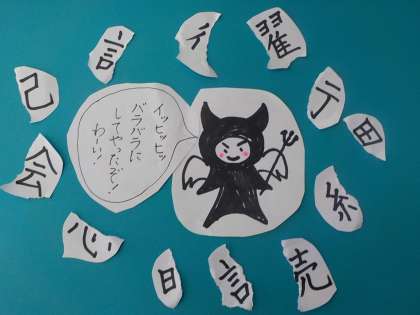 言
彳
翟
己
亍
田
イッヒッヒッ
バラバラに
してやったぞ!
わーい!
会
糸
心
日
言
売